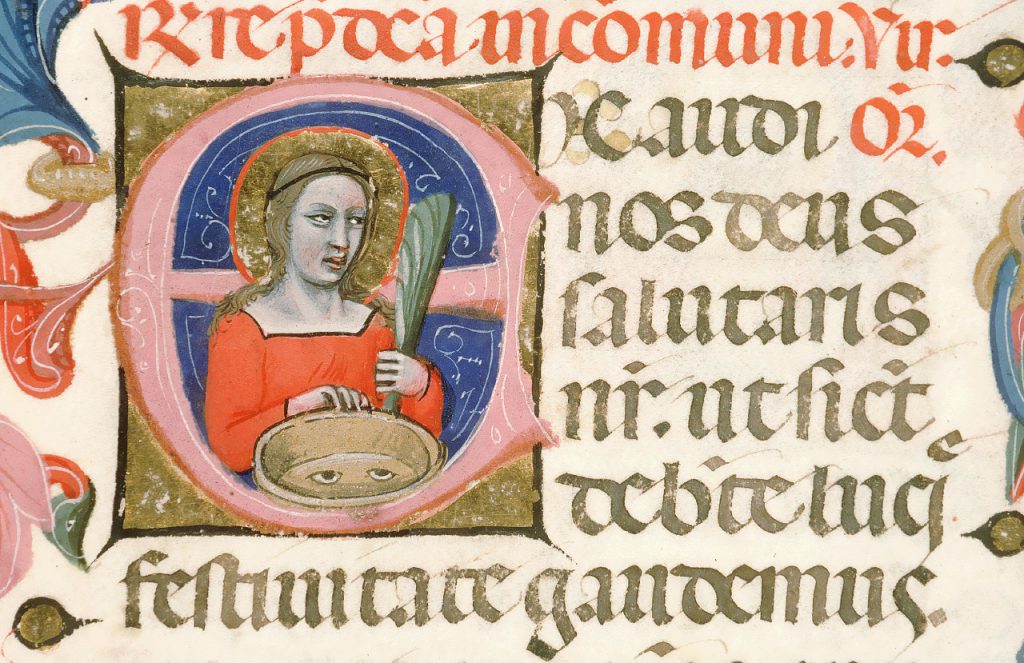 in cōmuni: Vir:
EXaudi Or̄.
nos deus
salutaris
nr̄. ut sic̄t
de b̄te
festiuitate gaudemus.